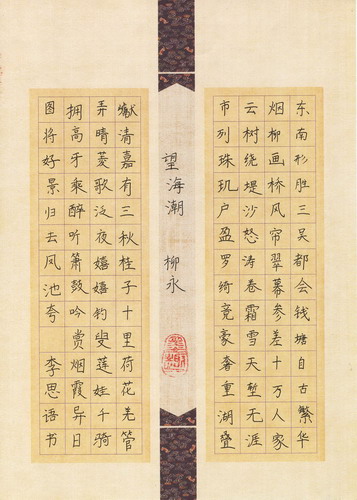 东南形胜三吴都会钱塘自古繁华
烟柳画桥风帘翠幕参差十万人家
云树绕堤沙怒涛卷霜雪天堑无涯
市列珠玑户盈罗绮竞豪奢重湖叠
望海潮 柳永
巘清嘉有三秋桂子十里荷花羌管
弄晴菱歌泛夜嬉嬉钓叟莲娃千骑
拥高牙乘醉听箫鼓吟赏烟霞异日
图将好景归去凤池夸 李思语书